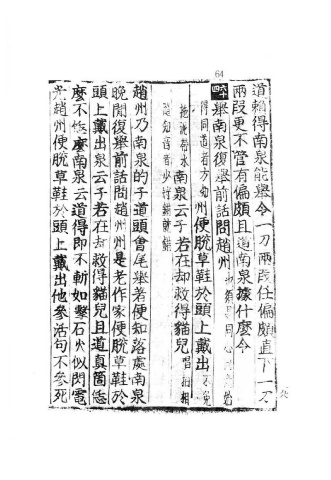 64
道賴得南泉能舉令一刀兩段任偏頗直下一刀
兩段更不管有偏頗且道南泉據什麼令
六十四舉南泉復舉前話問趙州也須是同心
得同道者方知州便脫草鞋於頭上戴出不免
拖泥帶水南泉云子若在却救得貓兒唱拍相
隨知音者少將錯就錯
趙州乃南泉的子道頭會尾舉著便知落處南泉
晚間復舉前話問趙州州是老作家便脫草鞋於
頭上戴出泉云子若在却救得貓兒且道真箇恁
麼不恁麼南泉云道得即不斬如擊石火似閃電
光趙州便脫草鞋於頭上戴出他參活句不參死